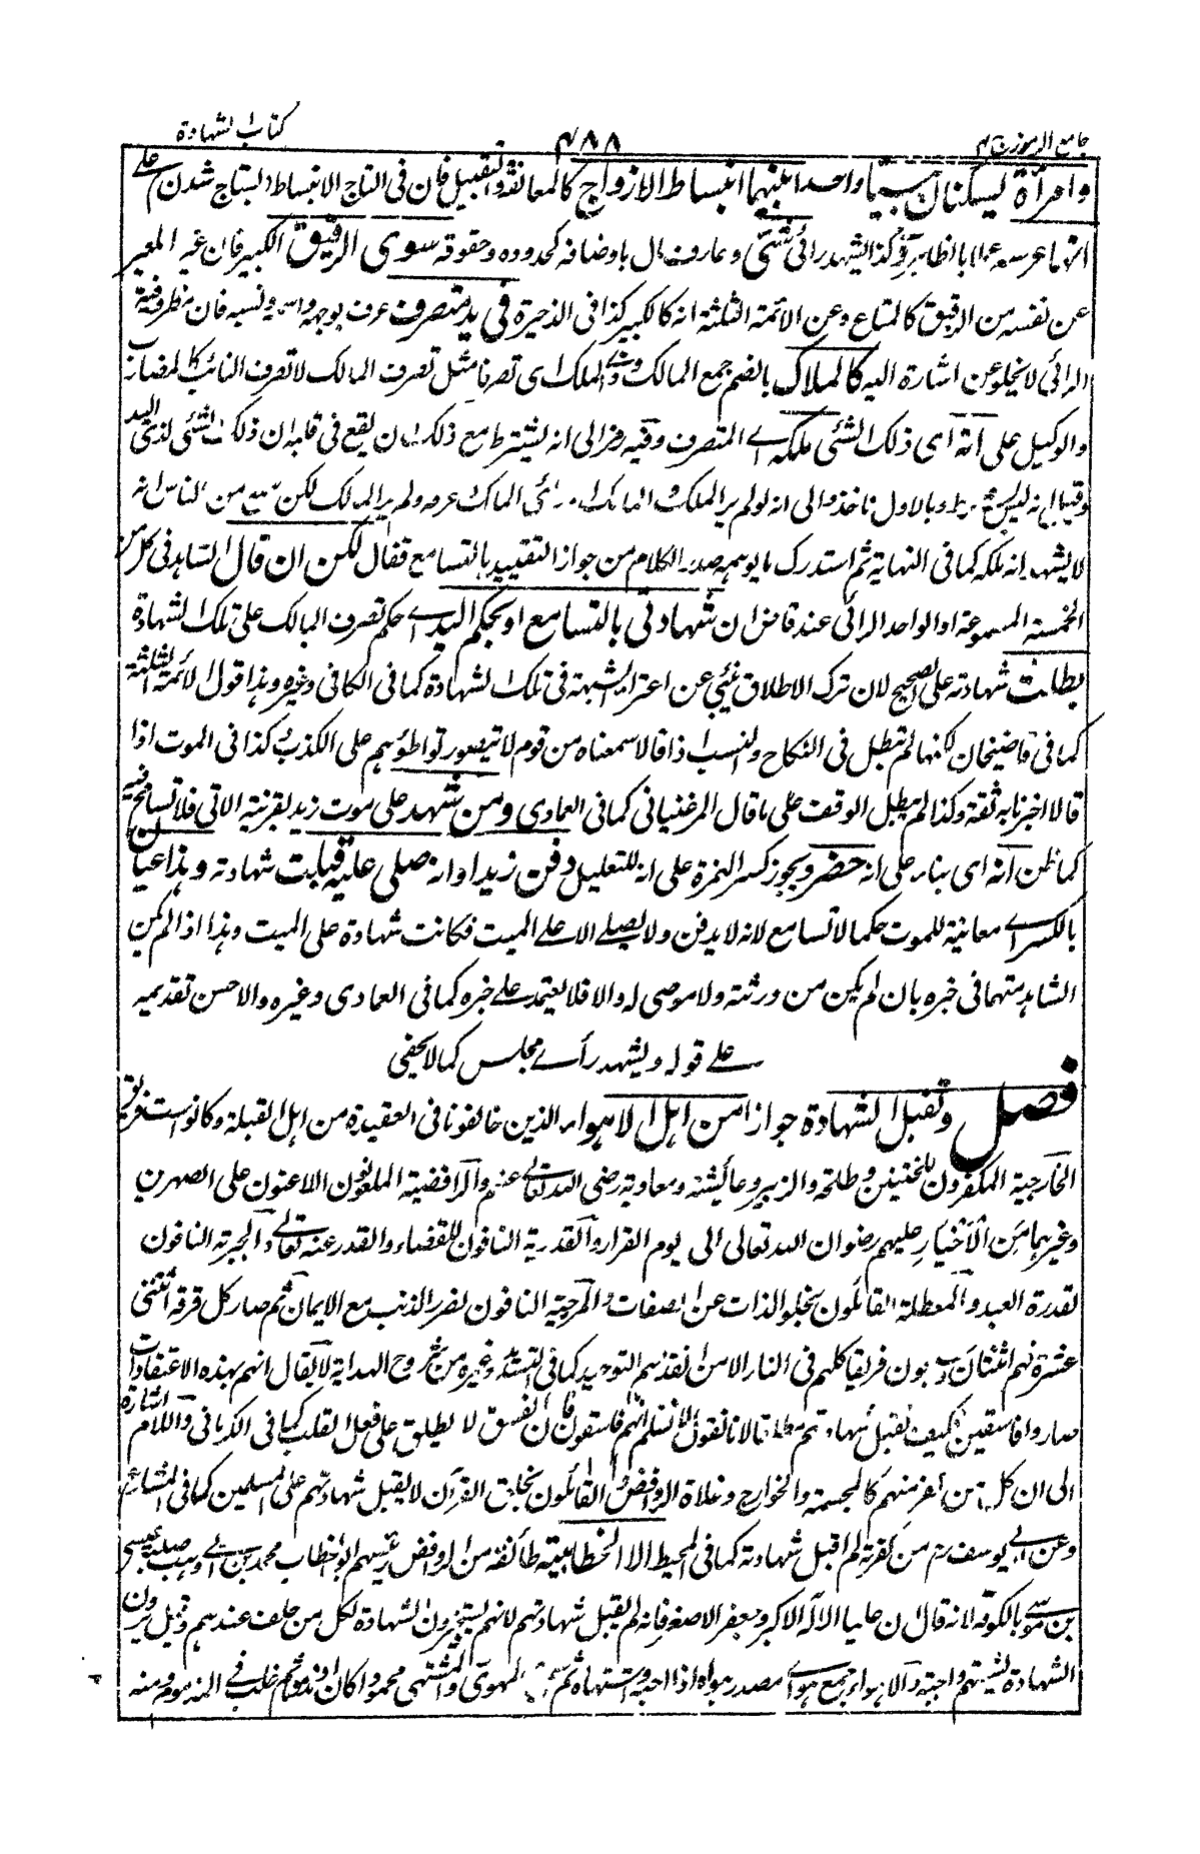 جامع الرموز ج ٢
٤٨٨
كتاب الشهادة
وامرأة يسكنان بيتا واحدا بينهما انبساط الازواج كالمعانقة والتقبيل فان في التاج الانبساط بستاخ شدن على
انها عرسه عملا بالظاهر وكذا يشهد رائي شئ وعارف ال باوضافه كحدوده وحقوقه سوى الرقيق الكبير فان غير المعبر
عن نفسه من الرقيق كالمتاع وعن الائمة الثلثة انه كالكبير كذا في الذخيرة في يد متصرف عرف بوجهه واسمه ونسبه فان مظروفية
الرائي لا يخلو عن اشارة اليه كالملاك بالضم جمع المالك وذي الملك اى تصرفا مثل تصرف المالك لا تصرف النائب كالمضارب
والوكيل على انه اى ذلك الشئ ملكه اے المتصرف وفيه رمز الى انه يشترط مع ذلك ان يقع في قلبه ان ذلك الشئ لذى اليد
وقيل انه ليس بشرط وبالاول ناخذ والى انه لو لم ير الملك و المالك او رأى المالك عرفه ولم ير المالك لكن سمع من الناس انه
لا يشهد انه ملكه كما في النهاية ثم استدرك ما يوهمه صدر الكلام من جواز التقييد بالتسامع فقال لكن ان قال الشاهد في كل من
الخمسة المسموعة او الواحد الرائي عند قاض ان شهادتي بالتسامع او بحكم اليد اے حكم تصرف المالك على تلك الشهادة
بطلت شهادته على الصحيح لان ترك الاطلاق ينبي عن اعتراء الشبهة في تلك الشهادة كما في الكافي وغيره وهذا قول الائمة الثلثة
كما في قاضيخان لكنها لم تبطل في النكاح والنسب اذا قالا سمعناه من قوم لا يتصور تواطؤهم على الكذب كذا في الموت اذا
قالا اخبرنا به ثقة وكذا لم يبطل الوقف على ما قال المرغنياني كما في العمادى ومن شهد على موت زيد بقرينة الاتى فلا تسامح فيه
كما ظن انه اى بناء على انه حضر ويجوز كسر الهمزة على انه للتعليل دفن زيد او انه صلى عليه قبلت شهادته وهذا عيان
بالكسر اے معاينة للموت حكما لا تسامع لانه لا يدفن ولا يصلے الا علے الميت فكانت شهادة على الميت وهذا اذا لم يكن
الشاهد متهما في خبره بان لم يكن من ورثته ولا موصى له والا فلا يعتمد علے خبره كما في العمادى وغيره والاحسن تقديمه
علے قوله ويشهد رأے مجلس كما لا يخفى
فصل وتقبل الشهادة جوازا من اهل الاهواء الذين خالفونا في العقيدة من اهل القبلة وكانوا ست فرق
الخارجية المكفرون للختنين وطلحة والزبير وعائشة ومعاوية رضى الله تعالى عنهم والرافضية الملعونون اللاعنون على الصهرين
وغيرهما من الاخيار عليهم رضوان الله تعالى الى يوم القرار والقدرية النافون للقضاء والقدر عنه تعالے والجبرية النافون
لقدرة العبد والمعطلة القائلون بخلو الذات عن الصفات والمرجية النافون لضرر الذنب مع الايمان ثم صار كل فرقة اثنتى
عشرة فهم اثنتان وسبعون فريقا كلهم في النار الا من انقذهم التوحيد كما في وغيره من شروح الهداية لا يقال انهم بهذه الاعتقادات
صاروا فاسقين كيف تقبل شهادتهم مطلقا لانا نقول لا نسلم انهم فاسقون فان الفسق لا يطلق على فعل القلب كما في الكرماني واللام اشارة
الى ان كل من كفر منهم كالمجسمة والخوارج وغلاة الروافض والقائلون بخلق القرآن لا يقبل شهادتهم على المسلمين كما في المشارع
وعن ابے يوسف رح من كفرته لم اقبل شهادته كما في المحيط الا الخطابية طائفة من الروافض رئيسهم ابو الخطاب محمد بن ابے وهب صلبه عيسى
بن موسے بالكوفة لانه قال ان عليا الاله الاكبر وجعفر الاصغر فانه لم يقبل شهادتهم لانهم يستجيزون الشهادة لكل من حلف عندهم وقيل يرون
الشهادة لشيعتهم واجبة والاهواء جمع هوے مصدر هواه اذا احبه واشتهاه ثم المهوى والمشتهى محمودا كان او مذموما ثم غلب في المذموم ومنه